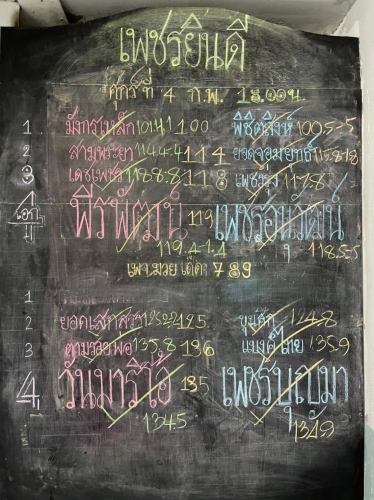 เพชรยินดี
ศุกร์ ที่ 4 ก.พ. 18.00น.
1 มังกรเหล็ก 101.1 100 พิชิตสิงห์ 100.5-5
2 สามพระยา 114.4-4 114 ยอดจอมยุทธ์ 115.8-8
3 เดชเพชร 118.8-8 118 เพชร 117.8
เอก พีรพัฒน์ 119 เพชรอนุวัฒน์
119.4-1.4 118.5-5
เพจ.มวยเด็ด 789
1
2 125 124.8
3 ตามรอยพ่อ 135.8 136 แบงค์ไทย 135.9
4 วันมาริโอ้ 135 เพชรบุเขมา
134.5 134.9